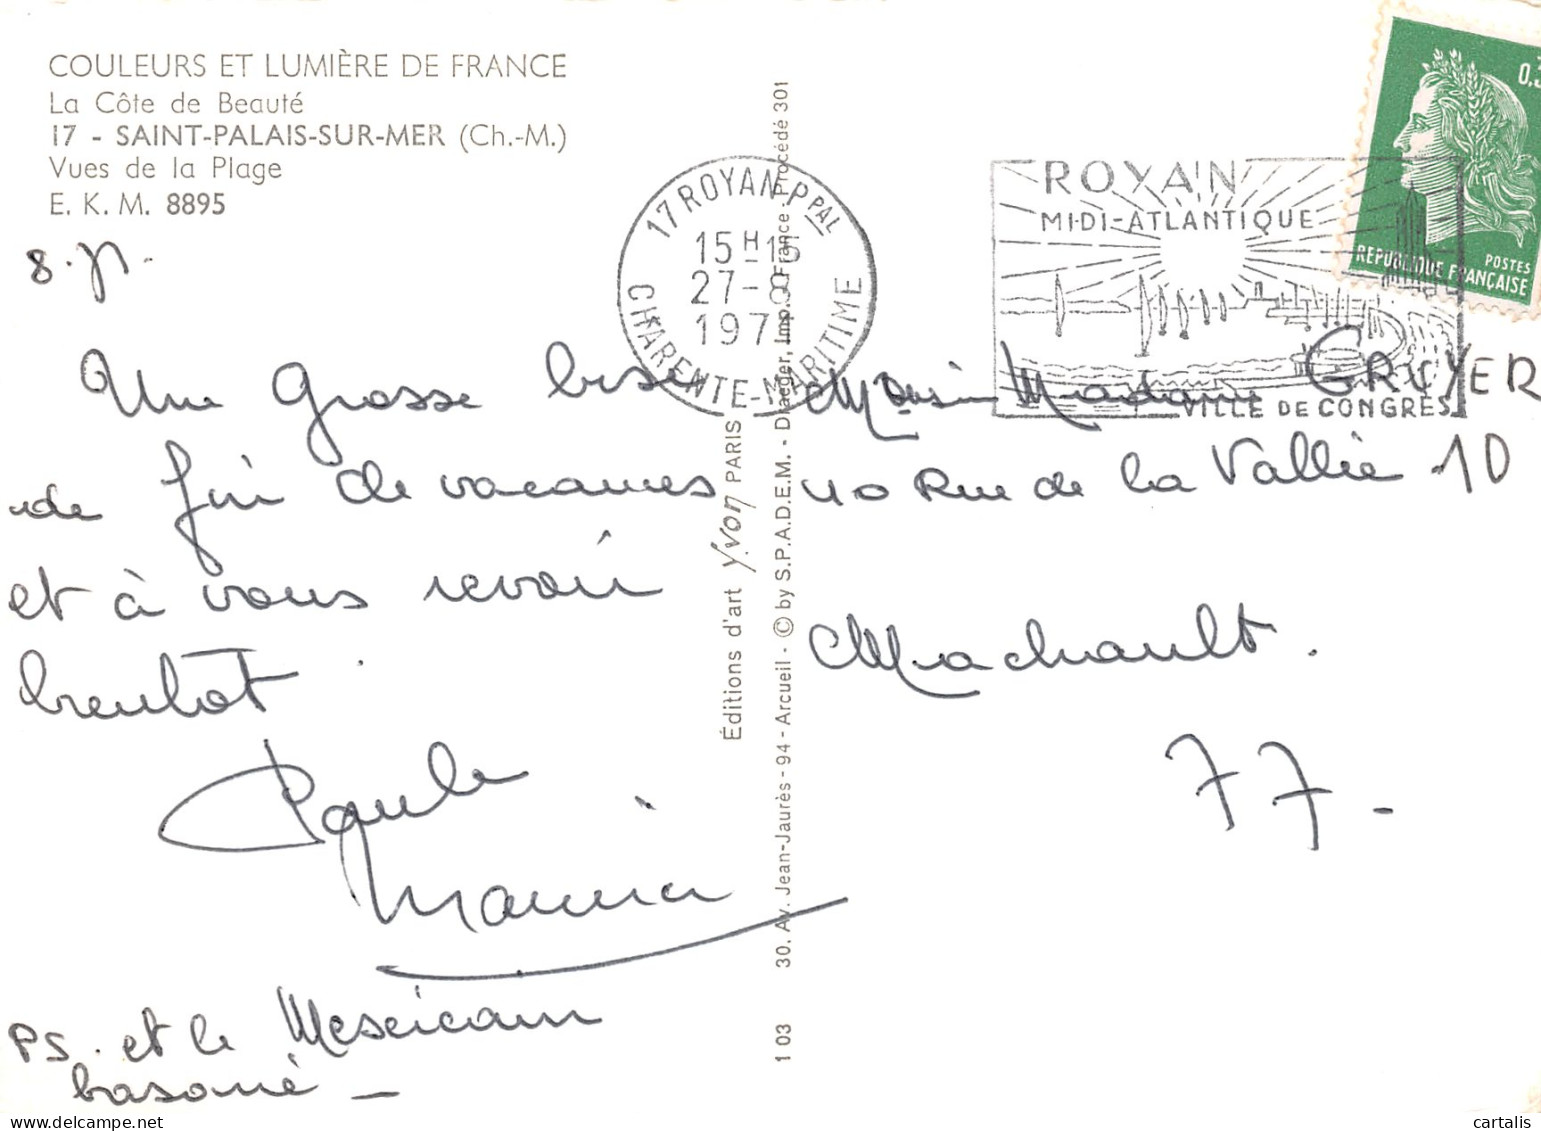 COULEURS ET LUMIÈRE DE FRANCE
La Côte de Beauté
17 - SAINT-PALAIS-SUR-MER (Ch.-M.)
Vues de la Plage
E. K. M. 8895
Une grosse bise
de fin de vacances
et à vous revoir
bientôt.
Paule
Maurice
PS. et le
basané -
17 ROYAN PPAL
15H15
27-8
197
CHARENTE-MARITIME
ROYAN
MIDI-ATLANTIQUE
VILLE DE CONGRÈS
0,3
POSTES
REPUBLIQUE FRANÇAISE
Madame GRUYER
10 Rue de la Vallée 10
Machault.
77.
Éditions d'art Yvon PARIS
1 03 30, Av. Jean-Jaurès - 94 - Arcueil - © by S.P.A.D.E.M. - Draeger, Imp. France Procédé 301
cartalis